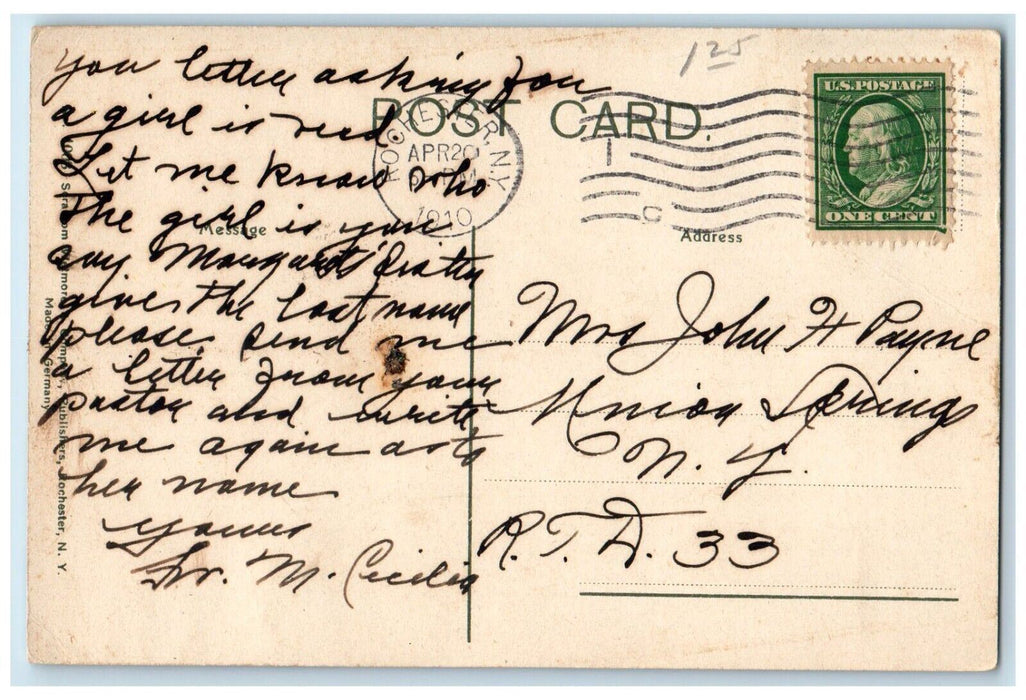 1 25
POST CARD.
U.S. POSTAGE
ONE CENT
ROCHESTER, N.Y.
APR 20
1910
Message
Address
you letter asking for
a girl is recd
Let me know who
the girl is you
say Margaret
gives the last name
please send me
a letter from your
pastor and write
me again as to
her name
yours
Sr. M. Cecilia
Mrs John H Payne
Union Springs
N. Y.
R. F. D. 33
Publishers, Rochester, N. Y.
Made in Germany